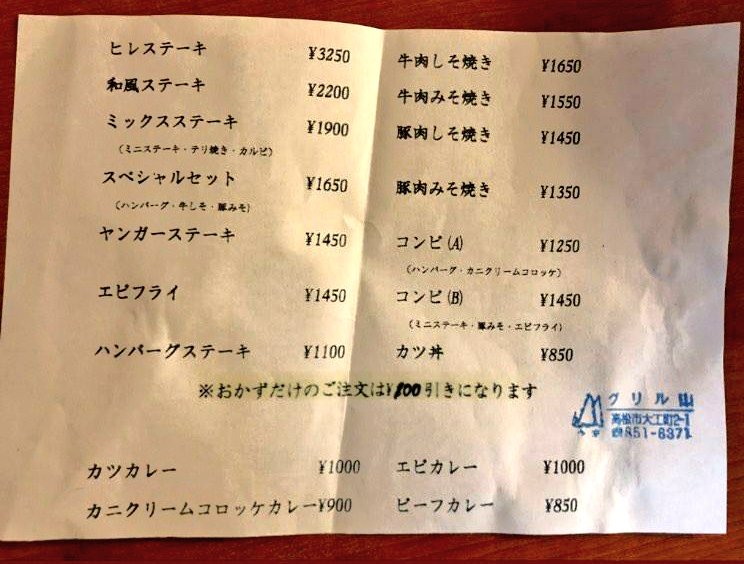 ヒレステーキ ¥3250
和風ステーキ ¥2200
ミックスステーキ ¥1900
(ミニステーキ・テリ焼き・カルビ)
スペシャルセット ¥1650
(ハンバーグ・牛しそ・豚みそ)
ヤンガーステーキ ¥1450
エビフライ ¥1450
ハンバーグステーキ ¥1100
牛肉しそ焼き ¥1650
牛肉みそ焼き ¥1550
豚肉しそ焼き ¥1450
豚肉みそ焼き ¥1350
コンビ(A) ¥1250
(ハンバーグ・カニクリームコロッケ)
コンビ(B) ¥1450
(ミニステーキ・豚みそ・エビフライ)
カツ丼 ¥850
※おかずだけのご注文は¥100引きになります
グリル山
高松市大工町2-1
☎851-6371
カツカレー ¥1000
カニクリームコロッケカレー¥900
エビカレー ¥1000
ビーフカレー ¥850